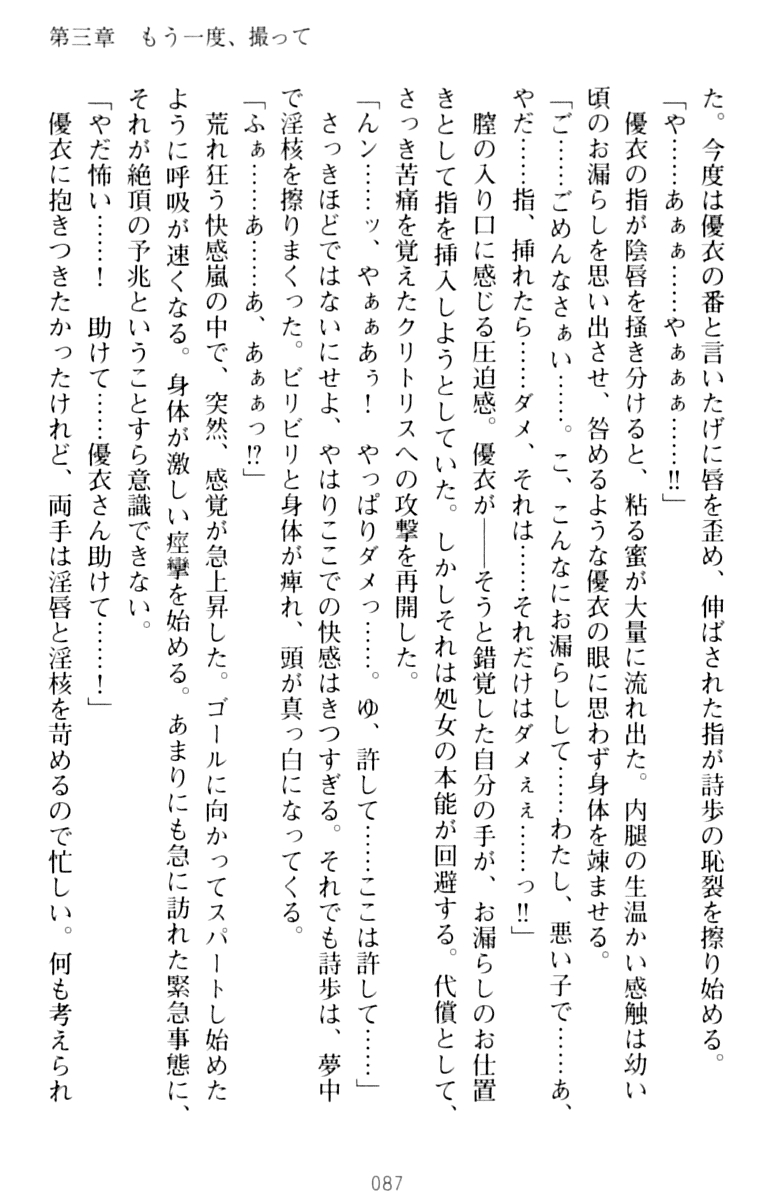 第三章　もう一度、撮って
た。今度は優衣の番と言いたげに唇を歪め、伸ばされた指が詩歩の恥裂を擦り始める。
「や……あぁぁ……やぁぁぁ……!!」
優衣の指が陰唇を掻き分けると、粘る蜜が大量に流れ出た。内腿の生温かい感触は幼い
頃のお漏らしを思い出させ、咎めるような優衣の眼に思わず身体を竦ませる。
「ご……ごめんなさぁい……。こ、こんなにお漏らしして……わたし、悪い子で……あ、
やだ……指、挿れたら……ダメ、それは……それだけはダメぇぇ……っ!!」
膣の入り口に感じる圧迫感。優衣が――そうと錯覚した自分の手が、お漏らしのお仕置
きとして指を挿入しようとしていた。しかしそれは処女の本能が回避する。代償として、
さっき苦痛を覚えたクリトリスへの攻撃を再開した。
「んン……ッ、やぁぁあぅ！　やっぱりダメっ……。ゆ、許して……ここは許して……」
さっきほどではないにせよ、やはりここでの快感はきつすぎる。それでも詩歩は、夢中
で淫核を擦りまくった。ビリビリと身体が痺れ、頭が真っ白になってくる。
「ふぁ……あ……あ、あぁぁっ!?」
荒れ狂う快感嵐の中で、突然、感覚が急上昇した。ゴールに向かってスパートし始めた
ように呼吸が速くなる。身体が激しい痙攣を始める。あまりにも急に訪れた緊急事態に、
それが絶頂の予兆ということすら意識できない。
「やだ怖い……！　助けて……優衣さん助けて……！」
優衣に抱きつきたかったけれど、両手は淫唇と淫核を苛めるので忙しい。何も考えられ
087